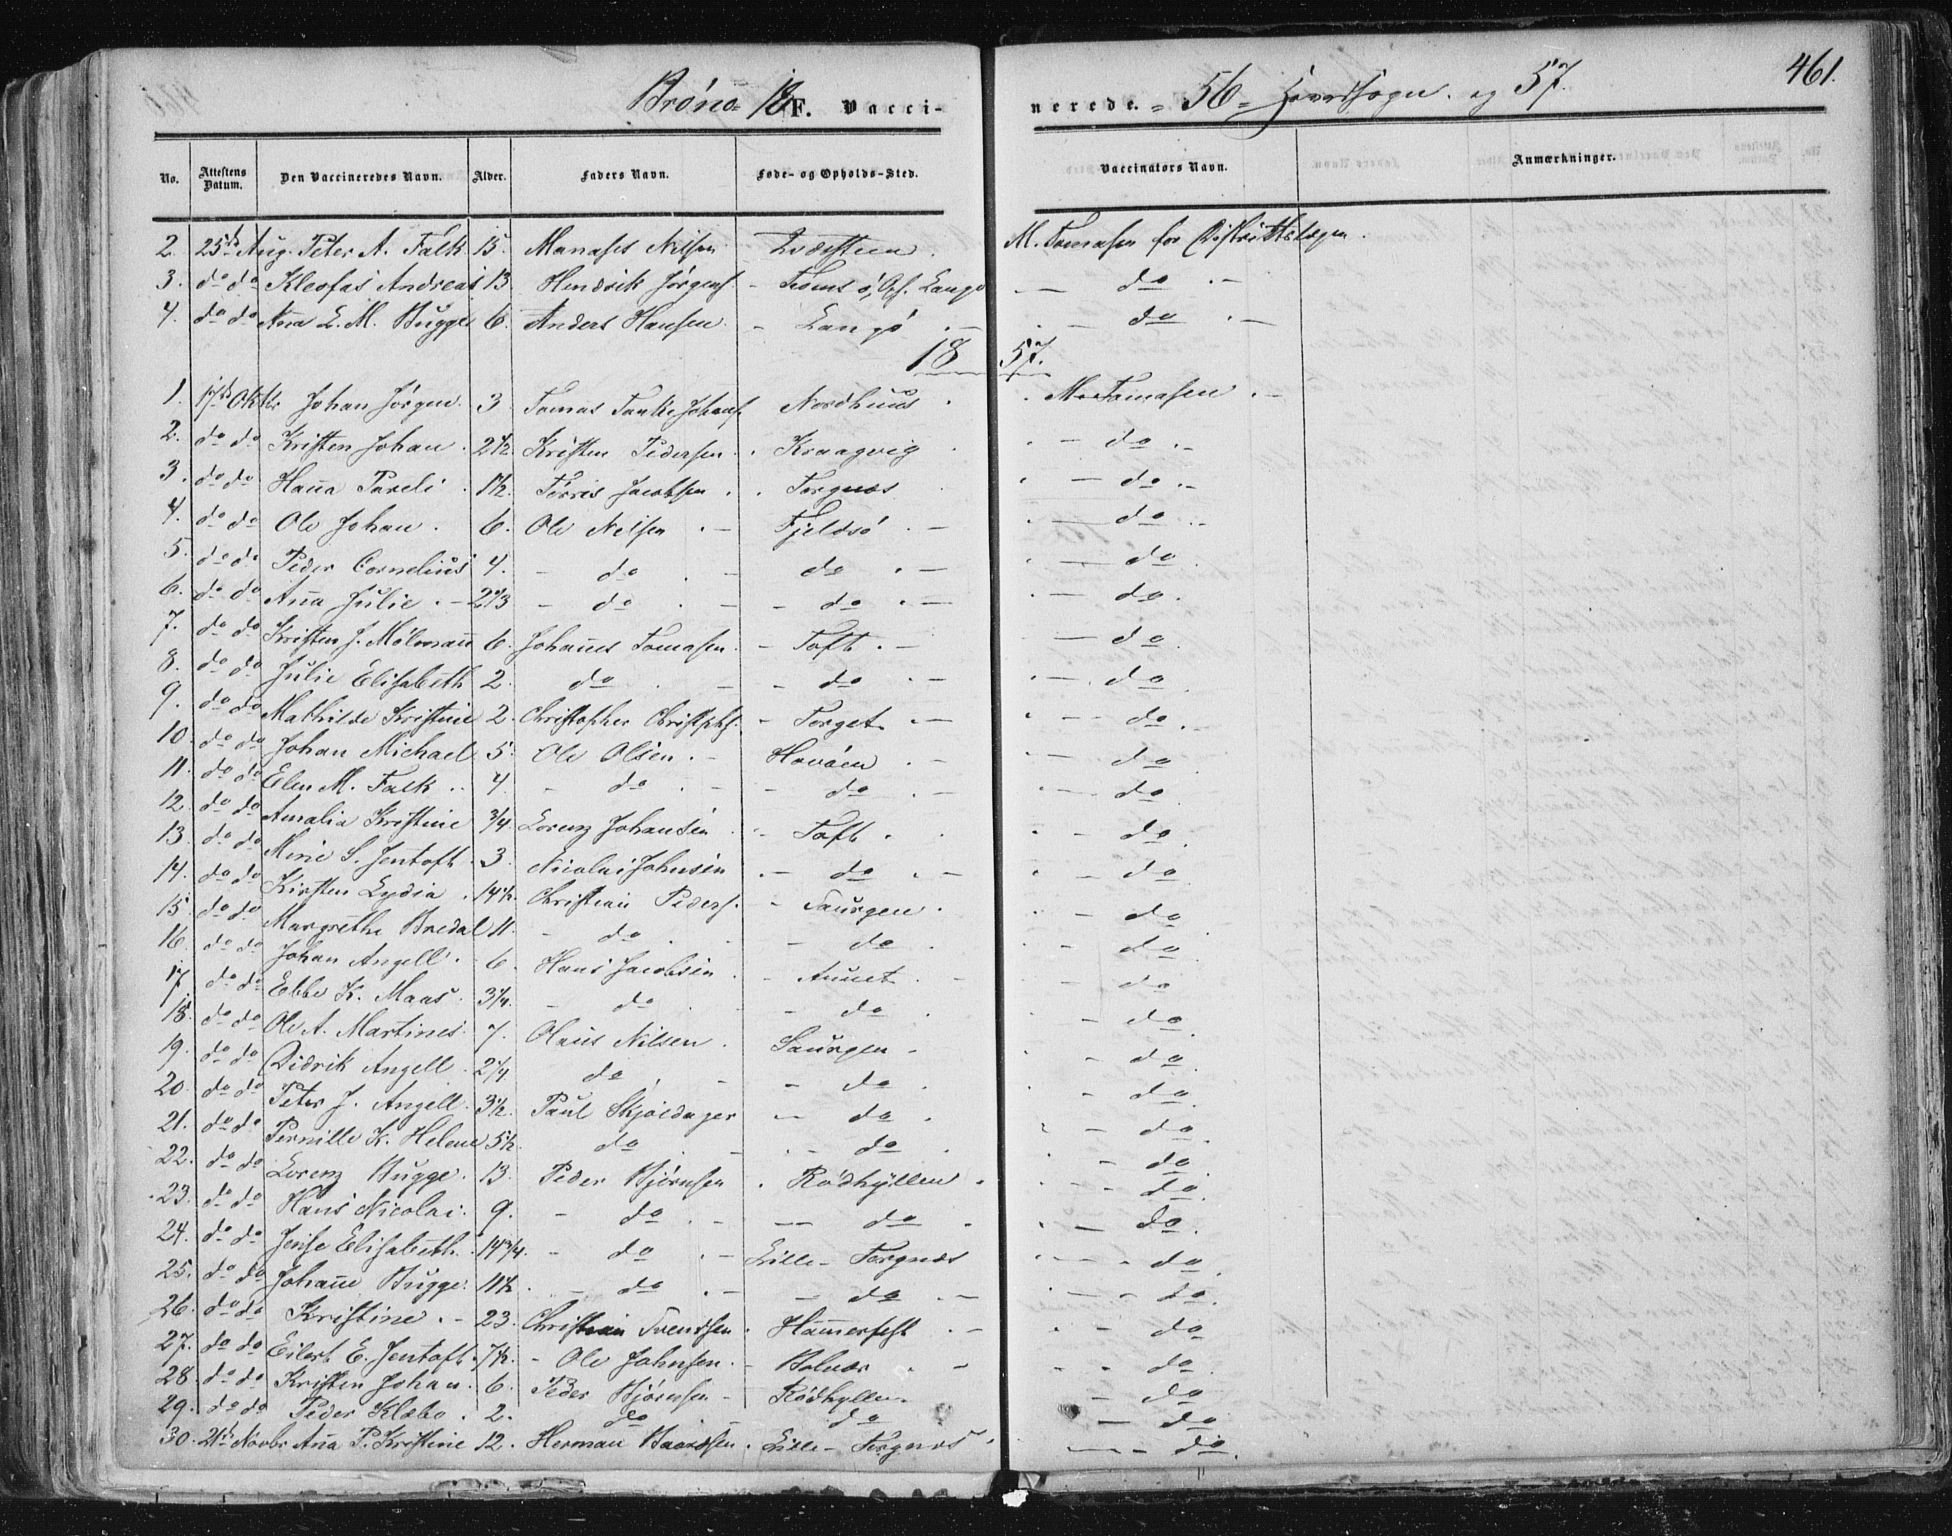 461.
Brønø 18 F. Vacci-nerede. 56 Hovedsogn og 57.
No. Attestens Datum. Den Vaccineredes Navn. Alder. Faders Navn. Føde- og Opholds-Sted. Vaccinators Navn. Anmærkninger.
2. 25de Aug. Peter A. Falk 15. Manases Nilsen M. Tomasen for Distriktslægen.
3. do do Kleofas Andreas 13 Hendrik Jørgens. - Tromsø, Langø - do -
4. do do Aña L. M. Bugge 6. Anders Hansen - Langø - do -
1857.
1. 17de Oktbr Johan Jørgen 3 Tomas Tanke Johans. Nordhuus M. Tomasen
2. do do Kristen Johan 2½ Kristen Pedersen Kraagvig - do -
3. do do Haña Pareli 1½. Tørris Jacobsen Torgnæs - do -
4. do do Ole Johan 6. Ole Nilsen - Fjeldsø - do -
5. do do Peder Cornelius 4. - do - do - do
6. do do Aña Julie 2⅔ - do - do - do.
7. do do Kristen J. Mølmañ 6. Johañes Tomasen - Toft - do
8. do do Julie Elisabeth 2. do - do - do
9. do do Mathilde Kristine 2. Christopher Christphs. - Torget - do
10. do do Johan Michael 5. Ole Olsen Havøen - do
11. do do Elen M. Falk 4. - do - do - do
12. do do Amalia Kristine ¾. Lorenz Johansen - Toft - do
13. do do Mine S. Jentoft 3. Nicolai Johnsen - do - do
14. do do Kirsten Lydia 14½. Christian Peders. - Saurgen - do
15. do do Margrethe Bredal 11. - do - do - do
16. do do Johan Angell 6. Hans Jacobsen - do
17. do do Ebbe K. Maas 3¼. - do - do - do
18. do do Ole A. Martines 7. Olaus Nilsen Saurgen - do
19. do do Didrik Angell 2¼. do - do - do
20. do do Peter J. Angell 3½. Paul Skjeldager - do - do
21. do do Pernille K. Helene 5½. do - do - do
22. do do Lorenz Bugge 13. Peder Bjørnsen Rødhyllen - do
23. do do Hans Nicolai 9. - do - do - do
24. do do Jense Elisabeth 14¾. - do - Lille-Torgnæs - do
25. do do Johañe Bugge 11½. - do - do - do
26. do do Kristine 23. Christian Svendsen Hamerfest - do
27. do do Eilert E. Jentoft 7½. - Ole Johnsen - Bolvær - do
28. do do Kristen Johan 6. Peder Bjørnsen - Rødhyllen - do
29. do do Peder Klæbo 2. do do - do
30. 21de Novbr Aña P. Kristine 12. Herman Baardsen Lille-Torgnæs - do.